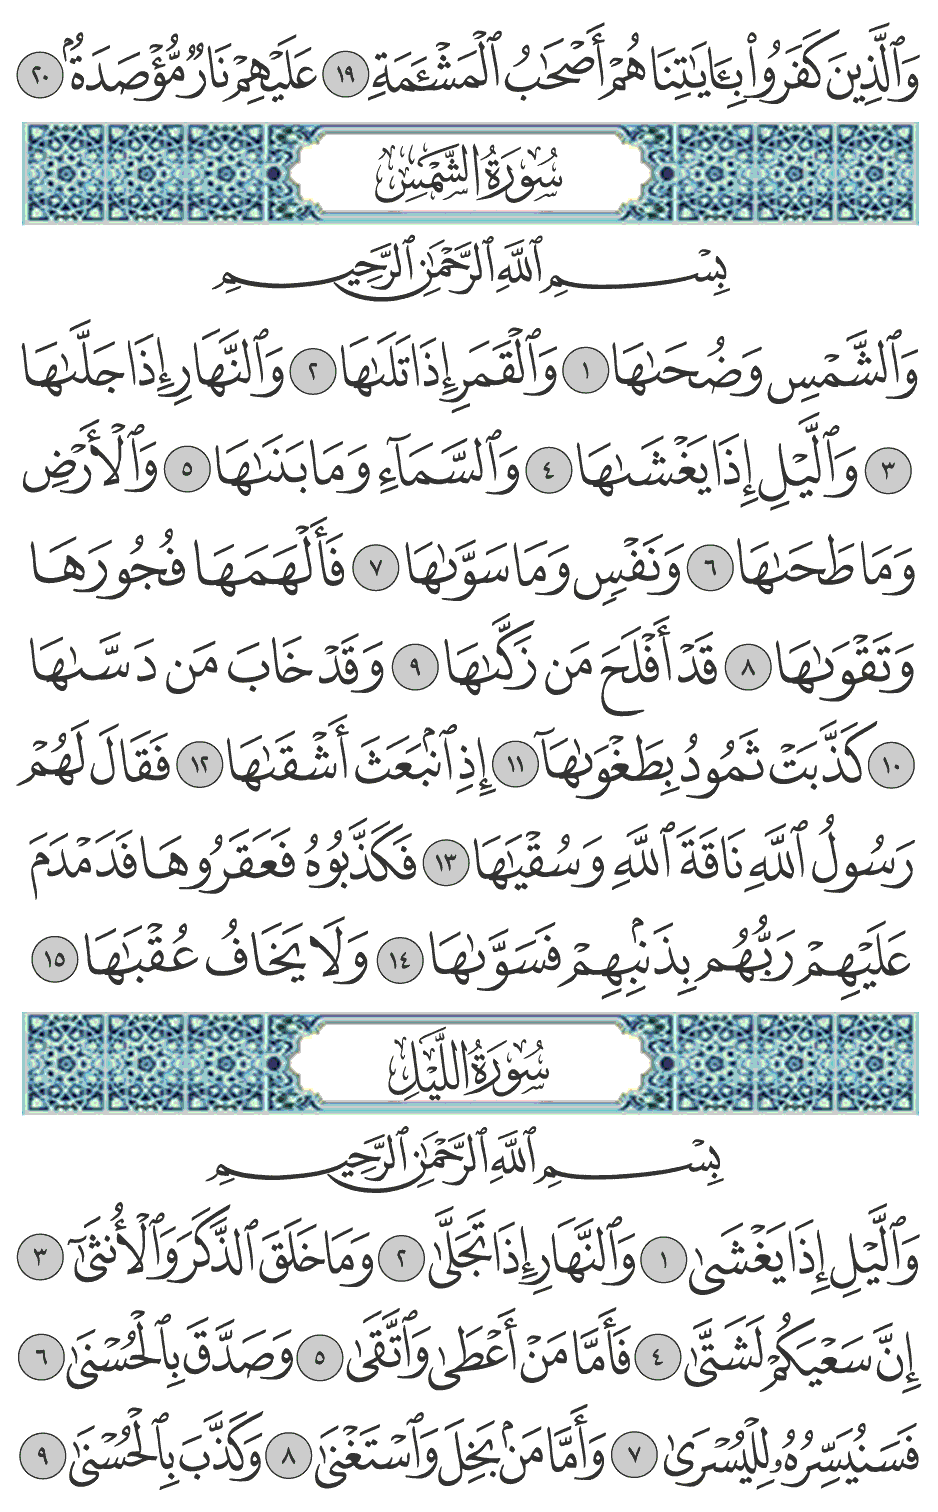 وَٱلَّذِينَ كَفَرُوا۟ بِـَٔايَـٰتِنَا هُمْ أَصْحَـٰبُ ٱلْمَشْـَٔمَةِ ١٩ عَلَيْهِمْ نَارٌ مُّؤْصَدَةٌۢ ٢٠
سُورَةُ الشَّمْسِ
بِسْمِ ٱللَّهِ ٱلرَّحْمَـٰنِ ٱلرَّحِيمِ
وَٱلشَّمْسِ وَضُحَىٰهَا ١ وَٱلْقَمَرِ إِذَا تَلَىٰهَا ٢ وَٱلنَّهَارِ إِذَا جَلَّىٰهَا
٣ وَٱلَّيْلِ إِذَا يَغْشَىٰهَا ٤ وَٱلسَّمَآءِ وَمَا بَنَىٰهَا ٥ وَٱلْأَرْضِ
وَمَا طَحَىٰهَا ٦ وَنَفْسٍ وَمَا سَوَّىٰهَا ٧ فَأَلْهَمَهَا فُجُورَهَا
وَتَقْوَىٰهَا ٨ قَدْ أَفْلَحَ مَن زَكَّىٰهَا ٩ وَقَدْ خَابَ مَن دَسَّىٰهَا
١٠ كَذَّبَتْ ثَمُودُ بِطَغْوَىٰهَآ ١١ إِذِ ٱنۢبَعَثَ أَشْقَىٰهَا ١٢ فَقَالَ لَهُمْ
رَسُولُ ٱللَّهِ نَاقَةَ ٱللَّهِ وَسُقْيَـٰهَا ١٣ فَكَذَّبُوهُ فَعَقَرُوهَا فَدَمْدَمَ
عَلَيْهِمْ رَبُّهُم بِذَنۢبِهِمْ فَسَوَّىٰهَا ١٤ وَلَا يَخَافُ عُقْبَـٰهَا ١٥
سُورَةُ اللَّيْلِ
بِسْمِ ٱللَّهِ ٱلرَّحْمَـٰنِ ٱلرَّحِيمِ
وَٱلَّيْلِ إِذَا يَغْشَىٰ ١ وَٱلنَّهَارِ إِذَا تَجَلَّىٰ ٢ وَمَا خَلَقَ ٱلذَّكَرَ وَٱلْأُنثَىٰٓ ٣
إِنَّ سَعْيَكُمْ لَشَتَّىٰ ٤ فَأَمَّا مَنْ أَعْطَىٰ وَٱتَّقَىٰ ٥ وَصَدَّقَ بِٱلْحُسْنَىٰ ٦
فَسَنُيَسِّرُهُۥ لِلْيُسْرَىٰ ٧ وَأَمَّا مَنۢ بَخِلَ وَٱسْتَغْنَىٰ ٨ وَكَذَّبَ بِٱلْحُسْنَىٰ ٩